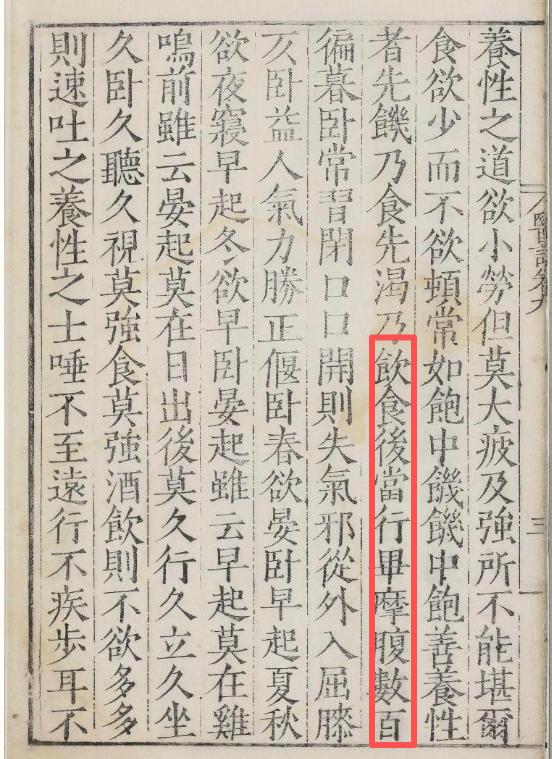 養性之道欲小勞但莫大疲及強所不能堪爾
食欲少而不欲頓常如飽中饑饑中飽善養性
者先饑乃食先渴乃飲食後當行畢摩腹數百
徧暮臥常習閉口口開則失氣邪從外入屈膝
仄臥益人氣力勝正偃臥春欲晏臥早起夏秋
欲夜寢早起冬欲早臥晏起雖云早起莫在雞
鳴前雖云晏起莫在日出後莫久行久立久坐
久臥久聽久視莫強食莫強酒飲則不欲多多
則速吐之養性之士唾不至遠行不疾步耳不